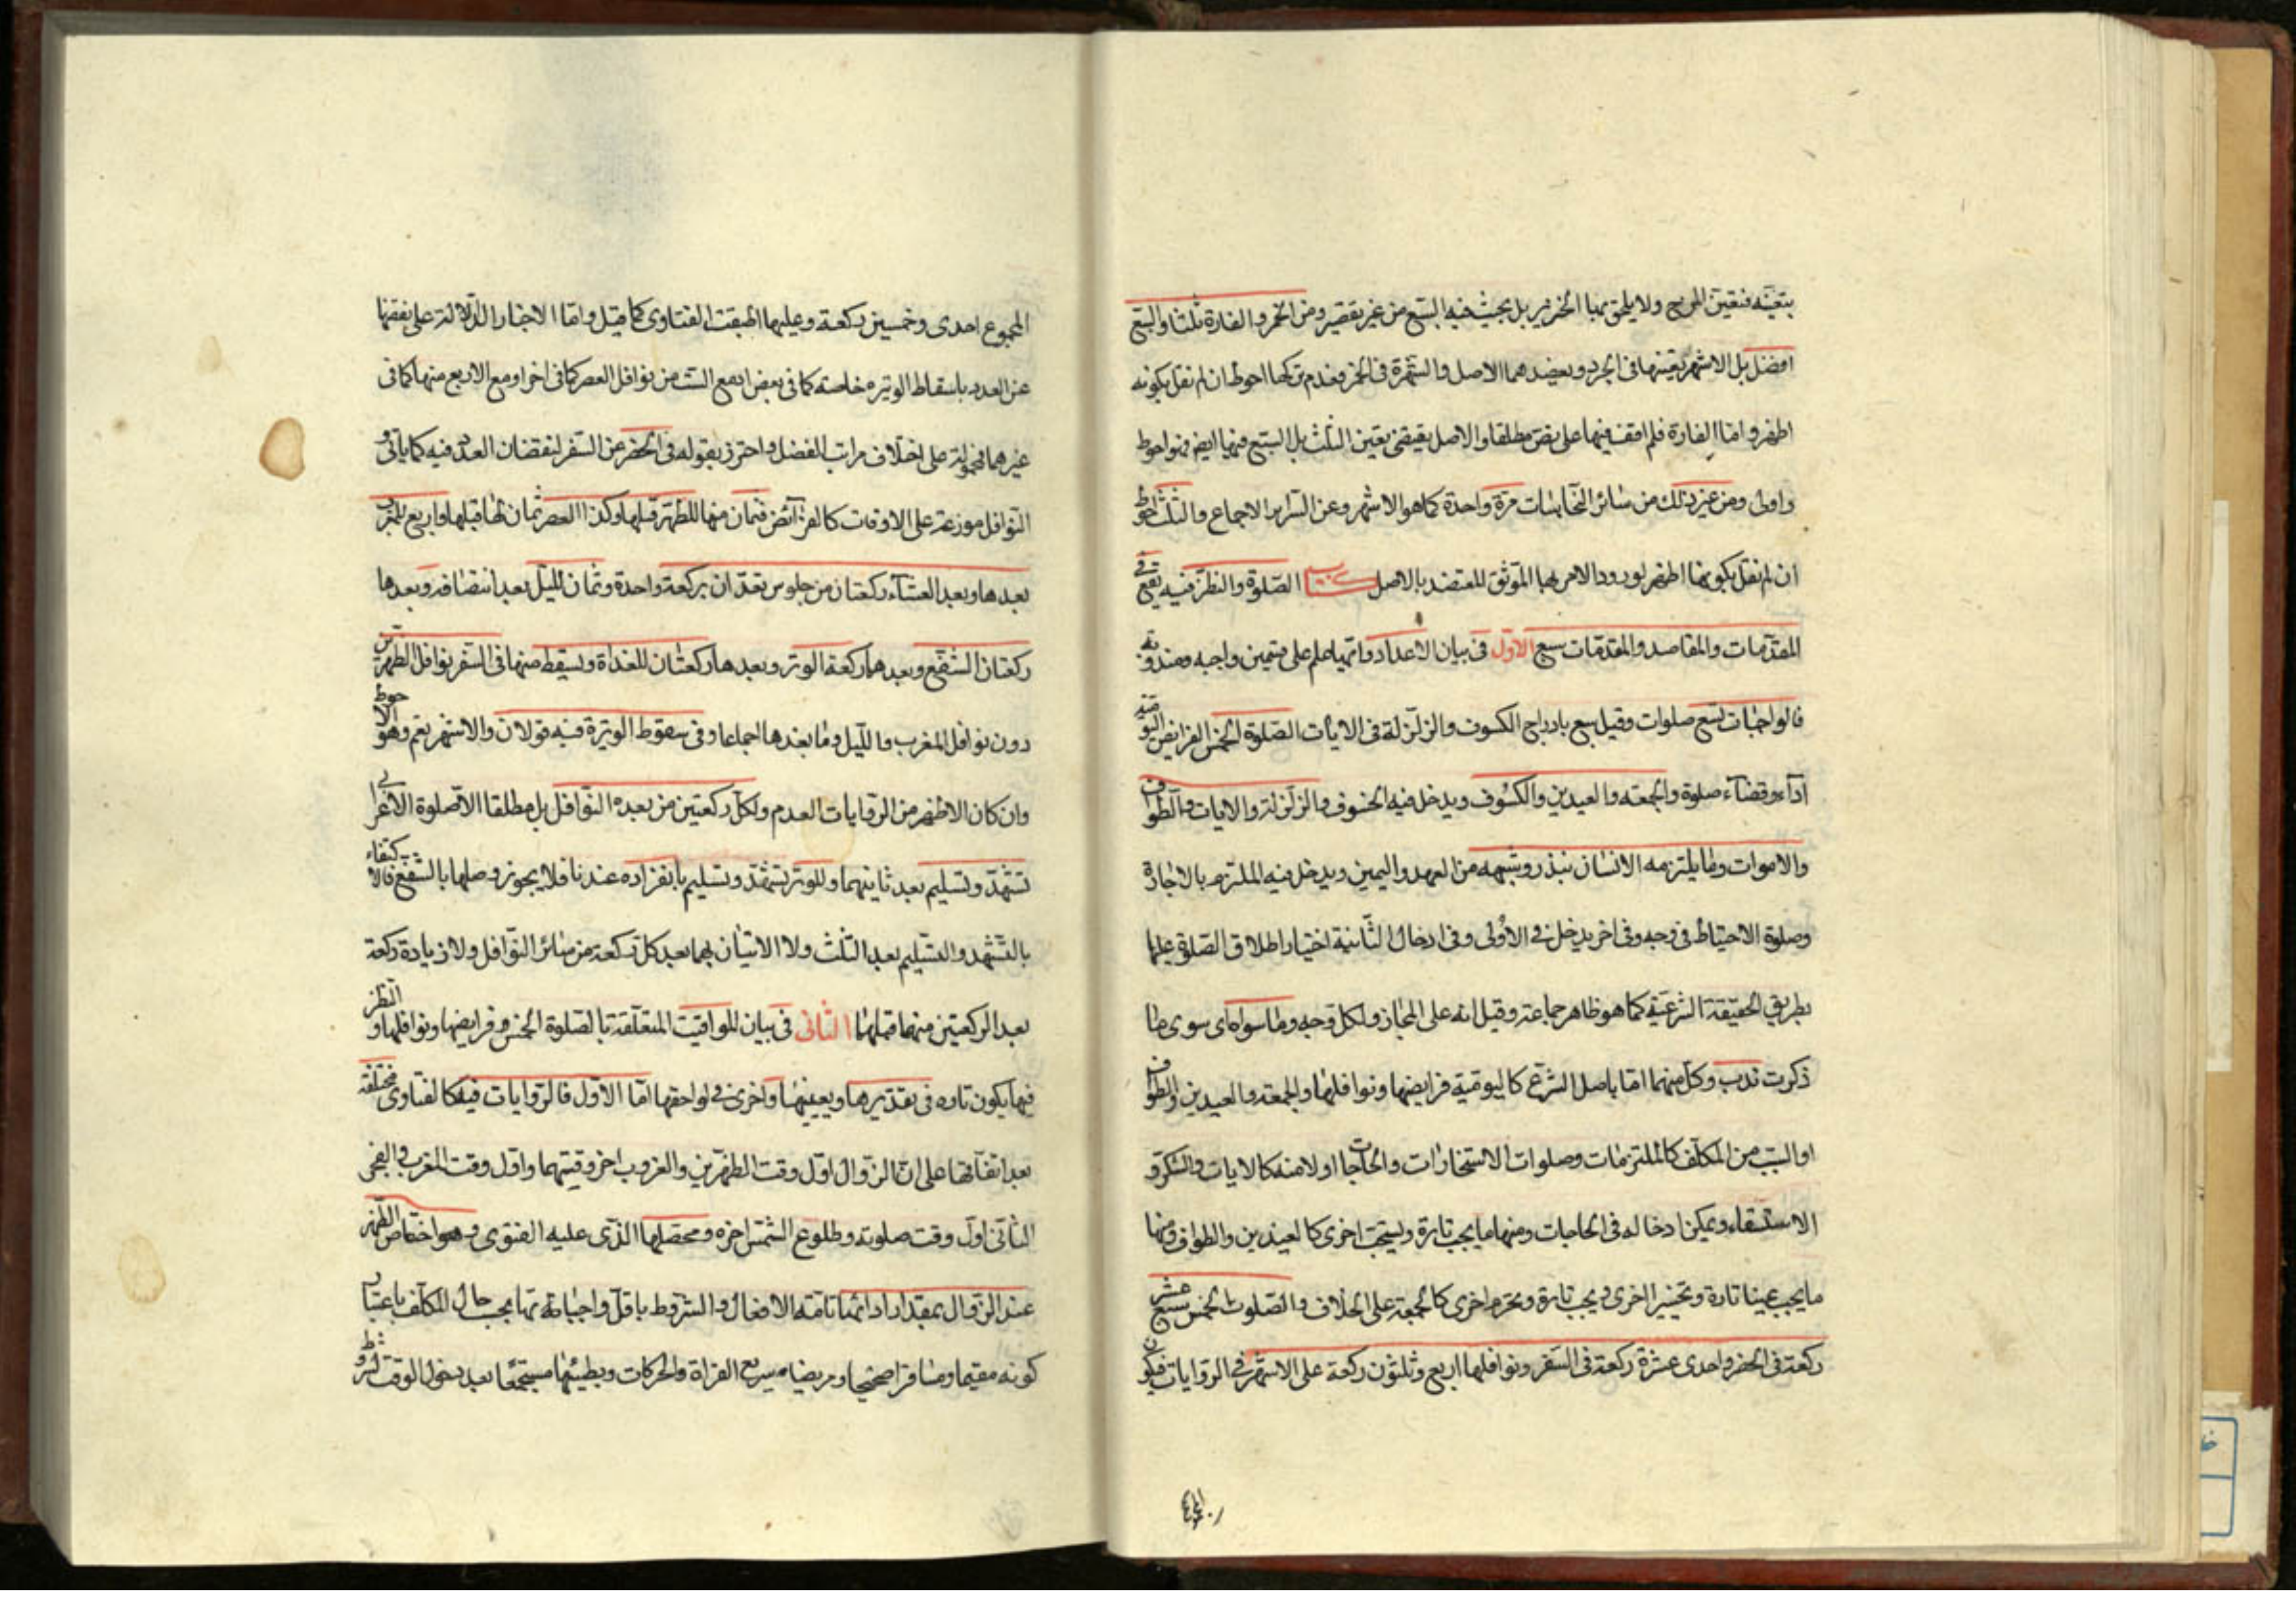 بتعينه فتعين المريج ولا يلحق بها الخنزير بل يجب فيه السبع من غير تقصير ومن الخمر والفارة ثلثا والسبع
افضل بل الاشهر تعينها في الجرذ ويعضدهما الاصل والشهرة في الخمر فعدم تركها احوط ان لم نقل بكونه
اظهر واما الفارة فلم اقف فيها على نص مطلقا والاصل يقتضى تعين الثلث بل السبع فيها ايض فهو احوط
واولى ومن غير ذلك من سائر النجاسات مرة واحدة كما هو الاشهر وعن السرائر الاجماع والثلث احوط
ان لم نقل بكونها اظهر لورود الامر بها الموثق المعتضد بالاصل كتاب الصلوة والنظر فيه يقع في
المقدمات والمقاصد والمقدمات سبع الاول في بيان الاعداد واتمها علم على قسمين واجبه ومندوبه
فالواجبات تسع صلوات وقيل سبع بادراج الكسوف والزلزلة في الايات الصلوة الخمس الفرايض اليومية
اداء وقضاء صلوة والجمعة والعيدين والكسوف ويدخل فيه الخسوف والزلزلة والايات والطواف
والاموات وما يلتزمه الانسان بنذر وشبهه من العهد واليمين ويدخل فيه الملتزم بالاجارة
وصلوة الاحتياط في وجه وفي اخر يدخل في الاولى وفي ادخال الثانية اختيار اطلاق الصلوة عليها
بطريق الحقيقة الشرعية كما هو ظاهر جماعة وقيل انه على المجاز ولكل وجه وما سواه اى سوى ما
ذكرت ندب وكل منهما اما باصل الشرع كاليومية فرايضها ونوافلها والجمعة والعيدين والطواف
او السبب من المكلف كالملتزمات وصلوات الاستخارات والحاجات اولا منه كالايات والشكر و
الاستسقاء ويمكن ادخاله في الحاجات ومنها ما يجب تارة ويستحب اخرى كالعيدين والطواف ومنها
ما يجب عينا تارة وتخييرا اخرى ويجب تارة ويحرم اخرى كالجمعة على الخلاف والصلوات الخمس سبع عشر
ركعة في الحضر واحدى عشرة ركعة في السفر ونوافلها اربع وثلثون ركعة على الاشهر في الروايات فيكون
المجموع
المجموع احدى وخمسين ركعة وعليها اطبقت الفتاوى كما قيل واما الاخبار الدالة على نقصها
عن العدد باسقاط الوتيره خاصة كما في بعض او مع الست من نوافل العصر كما في اخر او مع الاربع منها كما في
غيرهما فمحمولة على اختلاف مراتب الفضل واحترز بقوله في الحضر عن السفر لنقصان العدد فيه كما ياتى و
النوافل موزعة على الاوقات كالفرائض فثمان منها للظهر قبلها وكذا العصر ثمان لها قبلها واربع للمغرب
بعدها وبعد العشاء ركعتان من جلوس تعدان بركعة واحدة وثمان لليل بعد انتصافه وبعدها
ركعتان الشفع وبعدهما ركعة الوتر وبعدها ركعتان للغداة ويسقط منها في السفر نوافل الظهرين
دون نوافل المغرب والليل وما بعدها اجماعا وفي سقوط الوتيرة فيه قولان والاشهر نعم وهو الاحوط
وان كان الاظهر من الروايات العدم ولكل ركعتين من هذه النوافل بل مطلقا الا صلوة الاعرابى
تشهد وتسليم بعد ثانيتهما وللوتر تشهد وتسليم بانفراده عندنا فلا يجوز وصلها بالشفع فالاكتفاء
بالتشهد والتسليم بعد الثلث ولا الاتيان بهما بعد كل ركعة من سائر النوافل ولا زيادة ركعة
بعد الركعتين منهما قبلهما الثانى في بيان المواقيت المتعلقة بالصلوة الخمس وفرايضها ونوافلها والنظر
فيها يكون تاره في تقديرها وتعيينها واخرى في لواحقها اما الاول فالروايات فيه كالفتاوى مختلفة
بعد اتفاقها على ان الزوال اول وقت الظهرين والغروب اخر وقتهما واول وقت المغرب والفجر
الثاني اول وقت صلوته وطلوع الشمس اخره ومحصلها الذى عليه الفتوى وهو اختصاص الظهر
عند الزوال بمقدار ادائها تامة الافعال والشروط باقل واجباته بها بحسب حال المكلف باعتبار
كونه مقيما ومسافرا صحيحا ومريضا سريع القراة والحركات وبطيئها مستجمعا بعد دخول الوقت لشروط